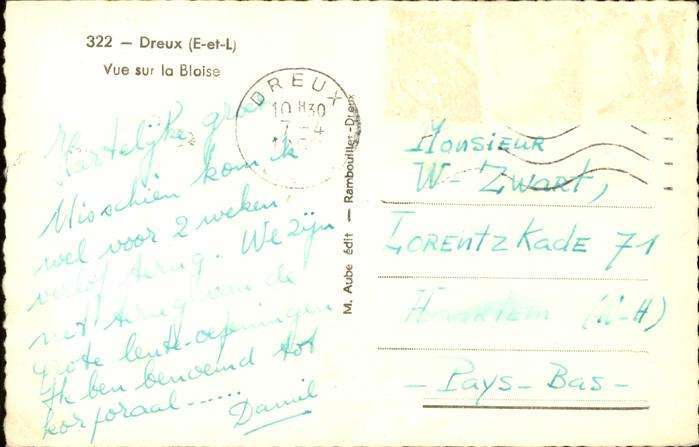 322 — Dreux (E-et-L)
Vue sur la Blaise
DREUX
10 H30
7 - 4
Hartelijke groet
Misschien kom ik
wel voor 2 weken
verlof terug. We zijn
net terug van de
grote lente-oefeningen
Ik ben benoemd tot
korporaal......
Daniel
M. Aube édit — Rambouillet-Dreux
Monsieur
W- Zwart,
Lorentzkade 71
Haarlem (N-H)
- Pays-Bas -